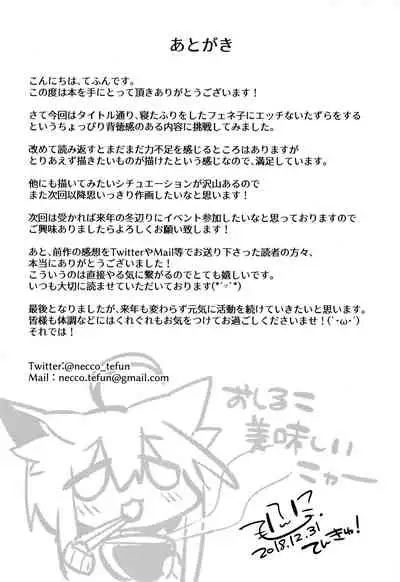 あとがき
こんにちは、てふんです。
この度は本を手にとって頂きありがとうございます！
さて今回はタイトル通り、寝たふりをしたフェネ子にエッチないたずらをする
というちょっぴり背徳感のある内容に挑戦してみました。
改めて読み返すとまだまだ力不足を感じるところはありますが
とりあえず描きたいものが描けたという感じなので、満足しています。
他にも描いてみたいシチュエーションが沢山あるので
また次回以降思いっきり作画したいなと思います！
次回は受かれば来年の冬辺りにイベント参加したいなと思っておりますので
ご興味ありましたらよろしくお願い致します！
あと、前作の感想をTwitterやMail等でお送り下さった読者の方々、
本当にありがとうございました！
こういうのは直接やる気に繋がるのでとても嬉しいです。
いつも大切に読ませていただいております(*´꒳`*)
最後となりましたが、来年も変わらず元気に活動を続けていきたいと思います。
皆様も体調などにはくれぐれもお気をつけてお過ごしくださいませ！(`･ω･´)
それでは！
Twitter:@necco_tefun
Mail：necco.tefun@gmail.com
おしるこ
美味しい
こゃー
2018.12.31
てんきゅ！